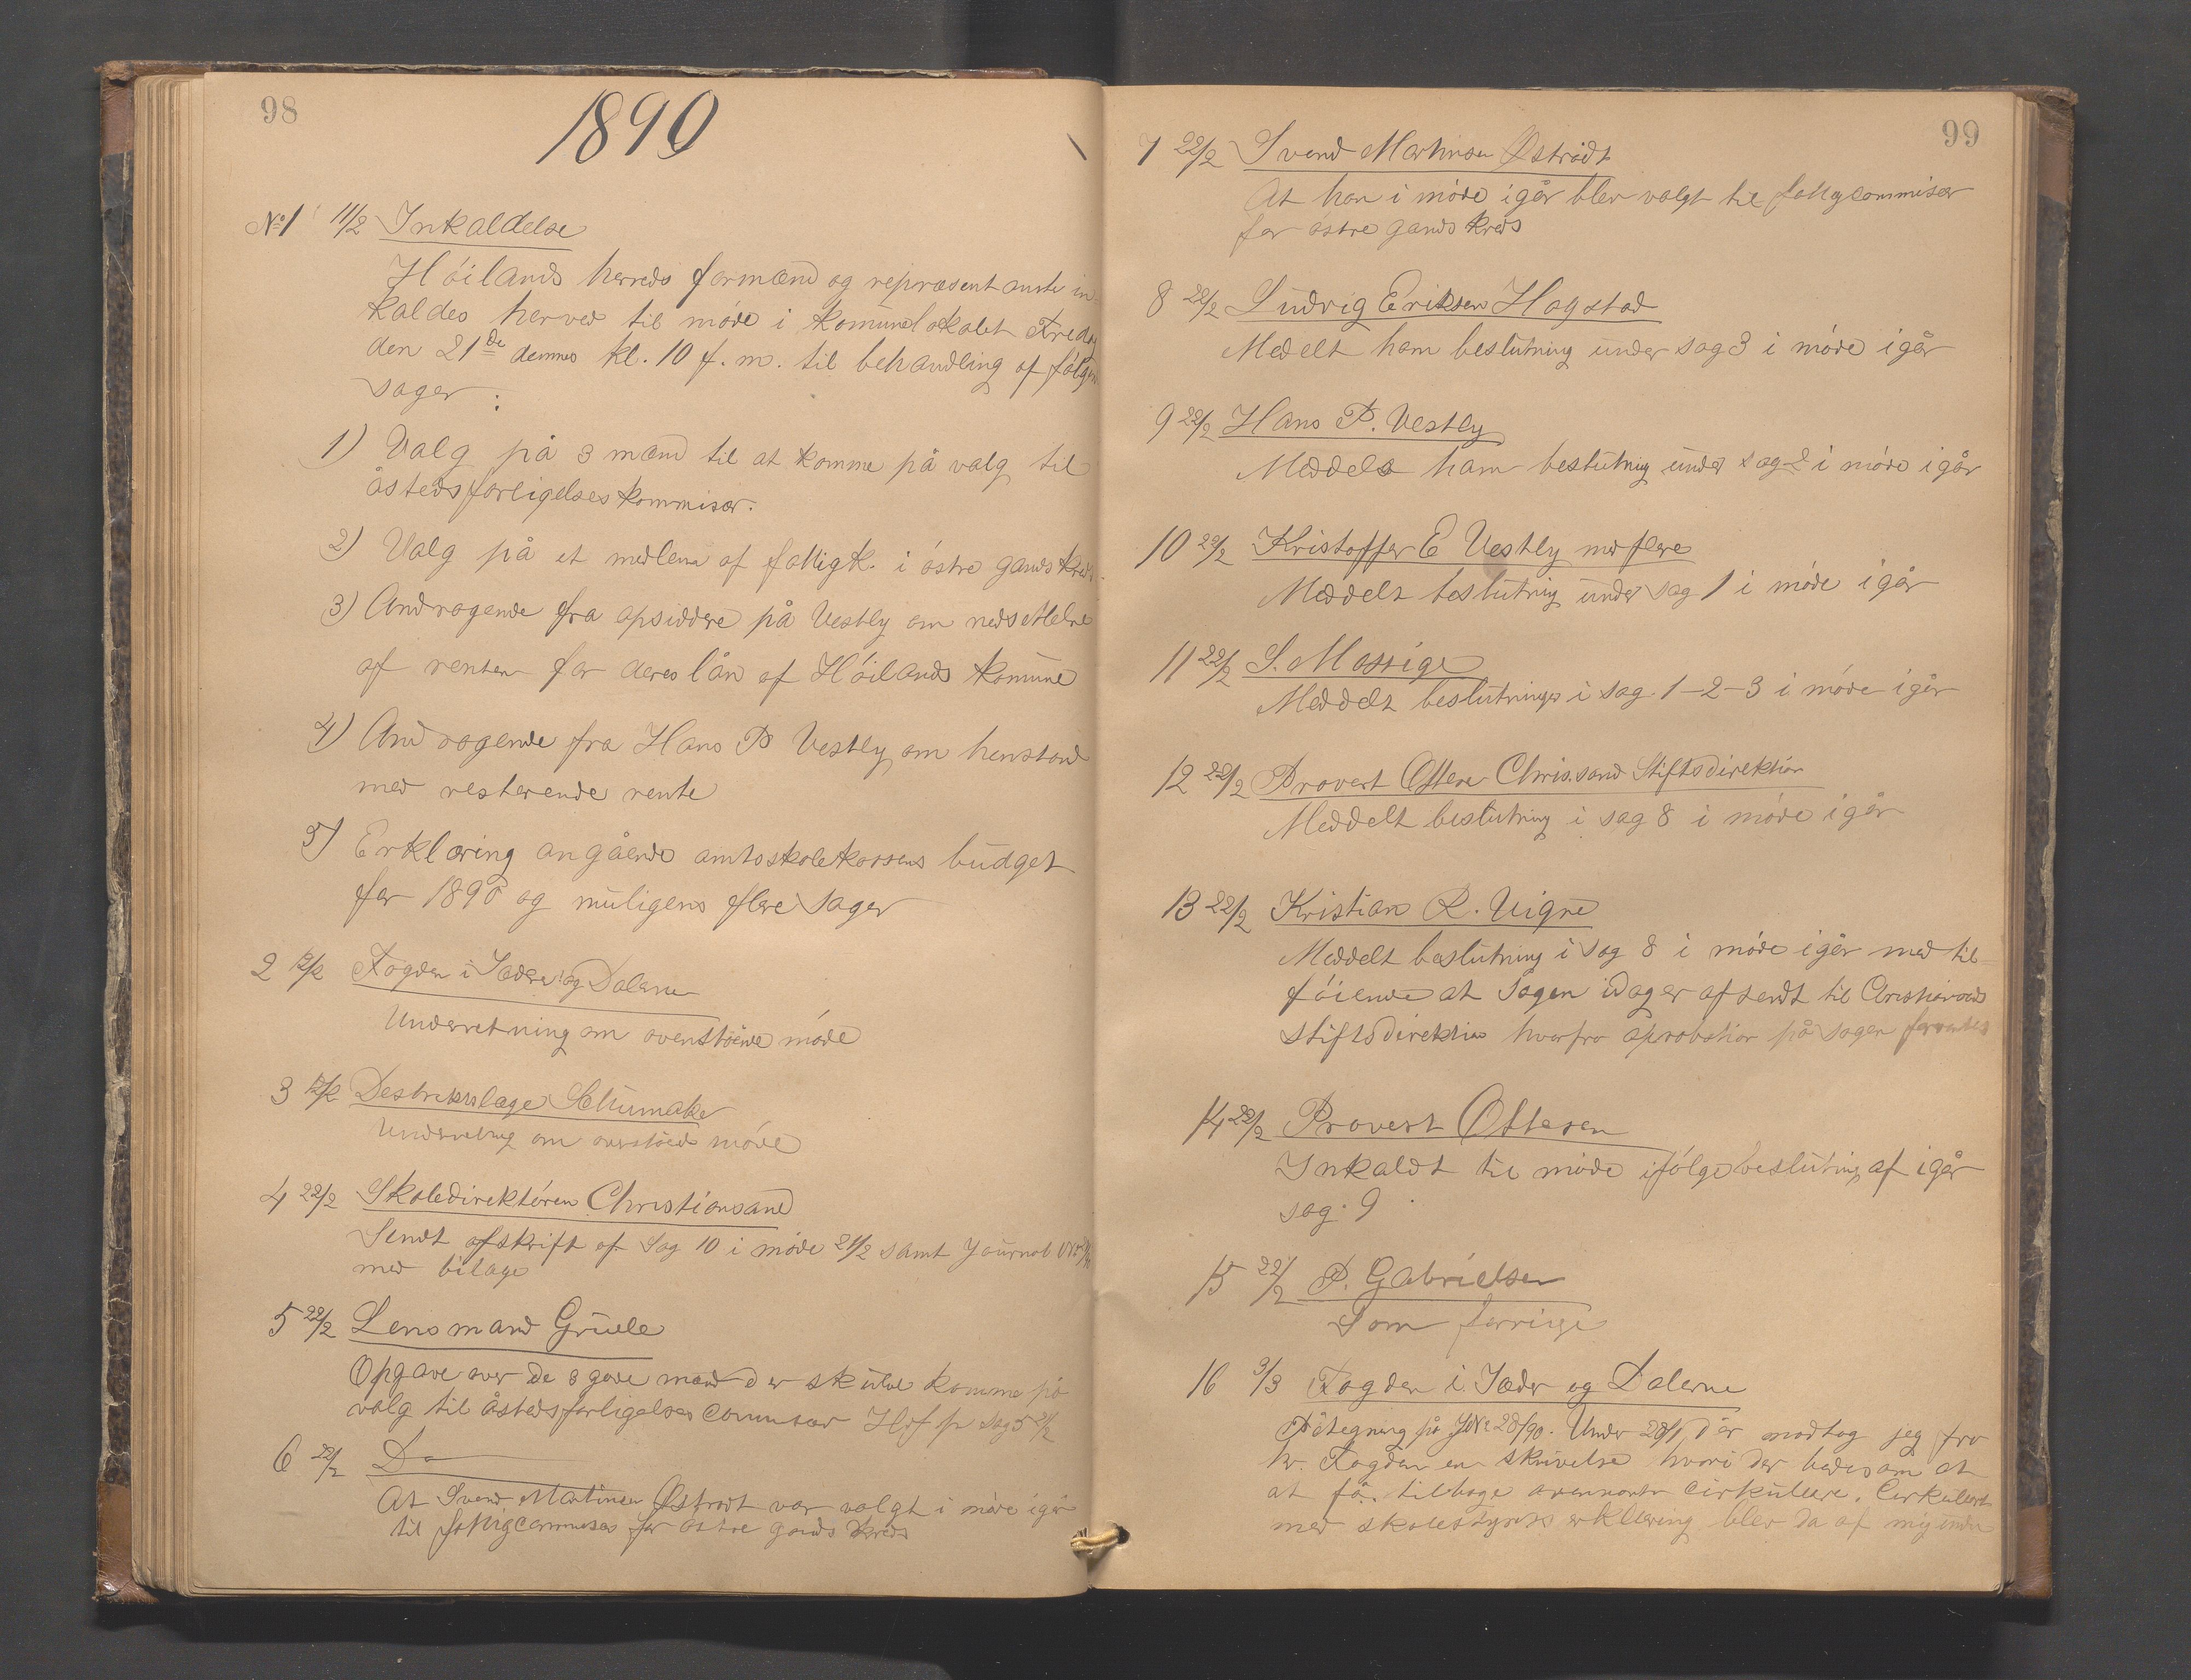 98
1890
No 1 11/2 Inkaldelse
Höilands herreds formænd og repræsentante in-
kaldes herved til möde i komunelokalet Fredag
den 21de dennes kl. 10 f. m. til behandling af fölgen
sager :
1) Valg på 3 mænd til at komme på valg til
åstedsforligelseskommisær.
2) Valg på et medlem af fattigk. i östre gands kreds
3) Andragende fra opsiddere på Vestly om nedsættelse
af renten for deres lån af Höilands komune
4) Andragende fra Hans P Vestly om henstand
med resterende rente
5) Erklæring angående amtsskolekassens budget
for 1890 og muligens flere sager
2 12/2 Fogden i Jæder og Dalerne
Underretning om ovenstående möde
3 12/2 Destriktslæge
Underretning om ovenstående möde
4 22/2 Skoledirektören Christiansand
Sendt afskrift af Sag 10 i möde 21/2 samt Journal
med bilage
5 22/2 Lensmand Grude
Opgave over de 3 gode mænd der skulde komme på
valg til åstedsforligelses commisær sag 5 21/2
6 22/2 Do
At Svend Martinsen Östrådt var valgt i möde igår
til fattigcommisær for östre gands kreds
99
7 22/2 Svend Martinsen Østrådt
At han i möde igår blev valgt til fattigcommisær
for östre gands kreds
8 22/2 Ludvig Eriksen Hogstad
Medelt ham beslutning under sag 3 i möde igår
9 22/2 Hans P. Vestly
Meddelt ham beslutning under sag 2 i möde igår
10 22/2 Kristoffer E Vestly med flere
Meddelt beslutning under sag 1 i möde igår
11 22/2 S. Mossige
Meddelt beslutninger i sag 1-2-3 i möde igår
12 22/2 Provst Chris.sand Stiftsdirektion
Meddelt beslutning i sag 8 i möde igår
13 22/2 Kristian R. Vigne
Meddelt beslutning i sag 8 i möde igår med til-
föiende at sagen idag er afsendt til Christiansands
Stiftsdirektion hvorfra aprobation på sagen forventes
14 22/2 Provst Ottesen
Inkaldt til möde ifölge beslutning af igår
sag 9
15 22/2 P. Gabrielsen
Som forrige
16 3/3 Fogden i Jæder og Dalerne
Påtegning på JNo 28/90. Under 28/1 d år modtog jeg fra
hr. Fogden en skrivelse hvori der bedes om at
at få tilbage cirkulære. Cirkulæret
med skolestyrets erklæring blev da af mig under